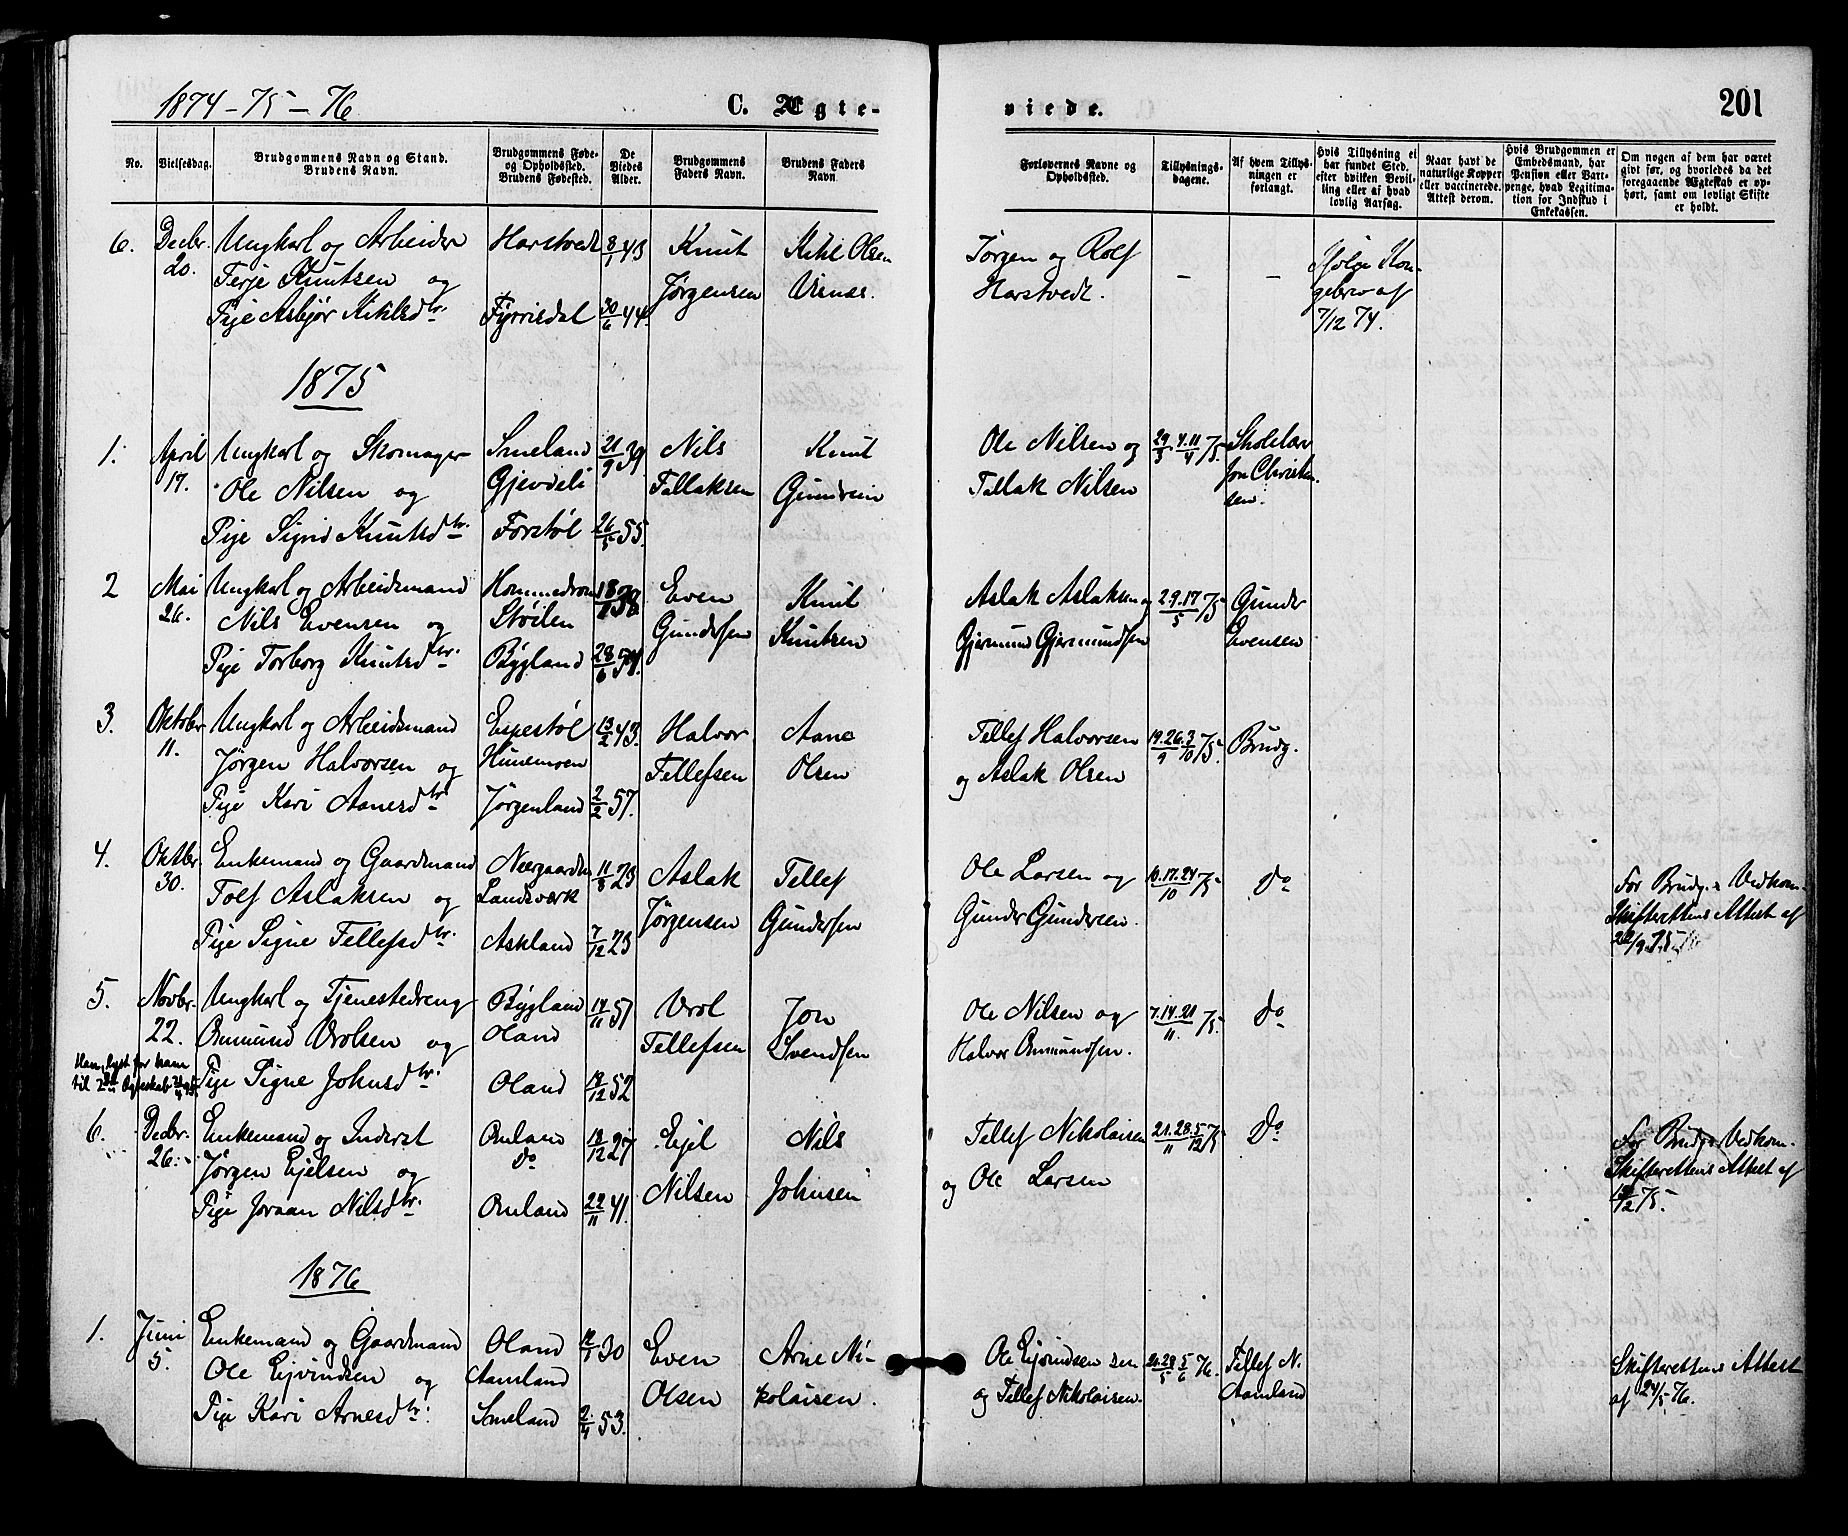 1874-75-76
C. Ægte-
viede.
201
No.
Vielsesdag.
Brudgommens Navn og Stand.
Brudens Navn.
Brudgommens Føde-
og Opholdssted.
Brudens Fødested.
De
Viedes
Alder.
Brudgommens
Faders Navn.
Brudens Faders
Navn.
Forlovernes Navne og
Opholdssted.
Tillysnings-
dagene.
Af hvem Tillys-
ningen er
forlangt.
Hvis Tillysning ei
har fundet Sted,
efter hvilken Bevil-
ling eller af hvad
lovlig Aarsag.
Naar havt de
naturlige Kopper
eller vaccinerede.
Attest derom.
Hvis Brudgommen er
Embedsmand, har
Pension eller Vart-
penge, hvad Legitima-
tion for Indskud i
Enkekassen.
Om nogen af dem har været
givt før, og hvorledes da det
foregaaende Ægteskab er op-
hørt, samt om lovligt Skifte
er holdt.
6. Decbr. 20.
Ungkarl og Arbeider
Terje Knutsen og
Pige Asbjør Kittilsdtr.
Harstvedt
Fyrrisdal
8/1 43
30/6 44.
Knut
Jørgensen
Kittil Olsen
Jørgen og Rolf
Harstvedt.
-
-
Ifølge Kon-
gebrev af
7/12 74.
1875
1. April 17.
Ungkarl og Skomager
Ole Nilsen og
Pige Signe Knutsdtr.
Smeland
Gjevdeli
Forstøl
21/9 39
26/5 55.
Nils
Tellaksen
Knut
Gundersen
Ole Nilsen og
Tellak Nilsen
29/3. 4.11/4 75.
Skolelær
Jon Christen-
sen.
2 Mai 26.
Ungkarl og Arbeidsmand
Nils Evensen og
Pige Torborg Knutsdtr.
Støilen
Bygland
28/6 54.
Even
Gundersen
Knut
Knutsen
Aslak Aslaksen og
Gjermund Gjermundsen
2.9.17/5 75
Gunder
Evensen
3. Oktober 11.
Ungkarl og Arbeidsmand
Jørgen Halvorsen og
Pige Kari Aanesdtr
Espestøl
Hunemoen
Jørgenland
13/2 43.
2/2 57.
Halvor
Tellefsen
Aane
Olsen
Tellef Halvorsen
og Aslak Olsen
19.26/9 3/10 75.
Brudg.
4. Oktbr. 30.
Enkemand og Gaardmand
Tolf Aslaksen og
Pige Signe Tellefsdtr.
Landsværk
Askland
11/8 23
7/12 23
Aslak
Jørgensen
Tellef
Gundersen
Ole Larsen og
Gunder Gundersen.
10.17.24/10 75
Do
For Brudg. Vedkom.
Skifterettens Attest af
5. Novbr. 22.
Ungkarl og Tjenestedreng
Omund Vrolsen og
Pige Signe Johnsdtr.
Bygland
Oland
Oland
14/11 51
12/12 52
Vrol
Tellefsen
Jon
Svendsen
Ole Nilsen og
Halvor Omundsen.
7.14.21/11 75.
Do
6. Decbr. 26.
Enkemand og Inderst
Jørgen Ejelsen og
Pige Joraan Nilsdtr.
Omland
Do
Omland
18/12 27
22/11 41.
Ejel
Nilsen
Nils
Johnsen
Tellef Nikolaisen
og Ole Larsen
21.28/11 5/12 75
Do
For Brudg. Vedkom.
Skifterettens Attest af
1876
1. Juni 5.
Enkemand og Gaardmand
Ole Ejvindsen og
Pige Kari Arnesdtr.
Oland
Aamland
Smeland
2/4 53.
Even
Olsen
Arne Ni-
kolaisen.
Ole Ejvindsen sen
og Tellef Nikolaisen.
21.28/5 5/6 76.
Tellef N.
Aamland
Skifterettens Attest
af 24/5 76.